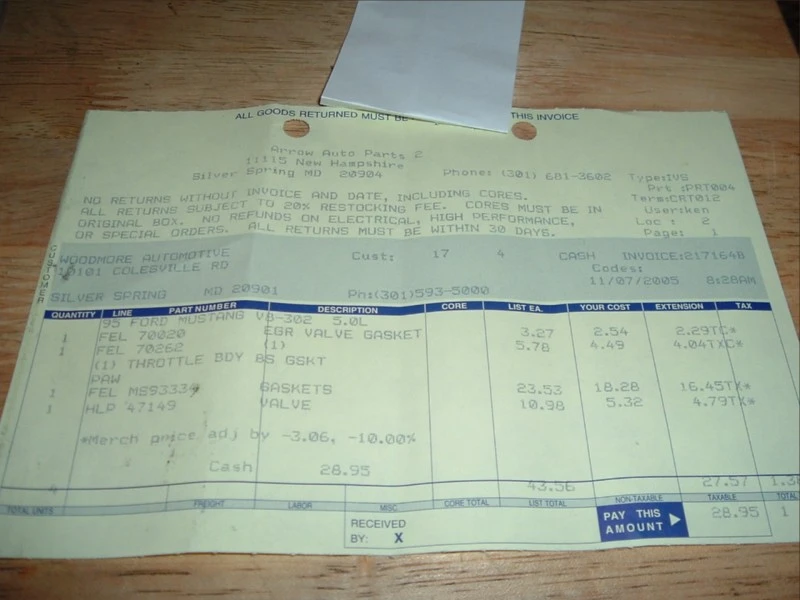 ALL GOODS RETURNED MUST BE THIS INVOICE
Arrow Auto Parts 2
11115 New Hampshire
Silver Spring MD 20904 Phone: (301) 681-3602 Type:IVS
Prt :PRT004
Term:CRT012
User:ken
Loc : 2
Page: 1
NO RETURNS WITHOUT INVOICE AND DATE, INCLUDING CORES.
ALL RETURNS SUBJECT TO 20% RESTOCKING FEE. CORES MUST BE IN
ORIGINAL BOX. NO REFUNDS ON ELECTRICAL, HIGH PERFORMANCE,
OR SPECIAL ORDERS. ALL RETURNS MUST BE WITHIN 30 DAYS.
CUSTOMER
WOODMORE AUTOMOTIVE Cust: 17 4 CASH INVOICE:2171648
10101 COLESVILLE RD Codes:
11/07/2005 8:28AM
SILVER SPRING MD 20901 Ph:(301)593-5000
QUANTITY LINE PART NUMBER DESCRIPTION CORE LIST EA. YOUR COST EXTENSION TAX
95 FORD MUSTANG V8-302 5.0L
1 FEL 70020 EGR VALVE GASKET 3.27 2.54 2.29TC*
1 FEL 70262 (1) 5.78 4.49 4.04TXC*
(1) THROTTLE BDY BS GSKT
PAW
1 FEL MS93334 GASKETS 23.53 18.28 16.45TX*
1 HLP 47149 VALVE 10.98 5.32 4.79TX*
*Merch price adj by -3.06, -10.00%
Cash 28.95
4 43.56 27.57 1.38
TOTAL UNITS FREIGHT LABOR MISC CORE TOTAL LIST TOTAL NON-TAXABLE TAXABLE TOTAL
RECEIVED
BY: X
PAY THIS
AMOUNT
28.95 1